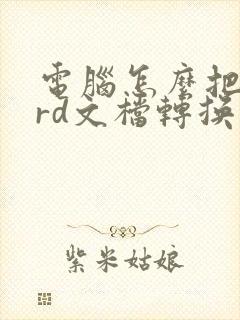 電腦怎麼把
rd文檔轉換
紫米姑娘